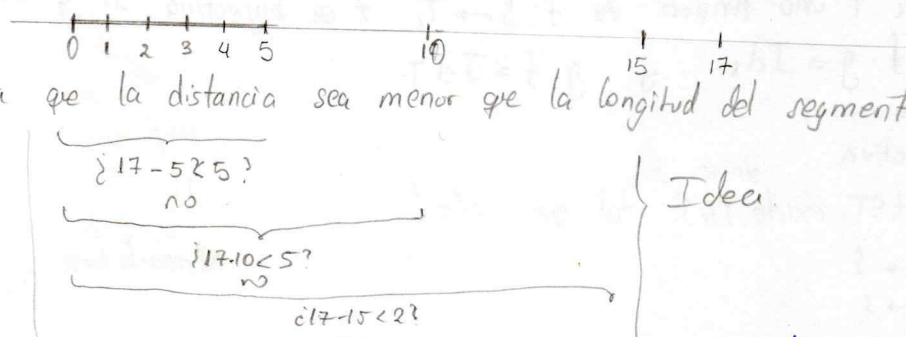 0 1 2 3 4 5 10 15 17
que la distancia sea menor que la longitud del segment
¿17-5<5?
no
¿17-10<5?
no
¿17-15<2?
Idea